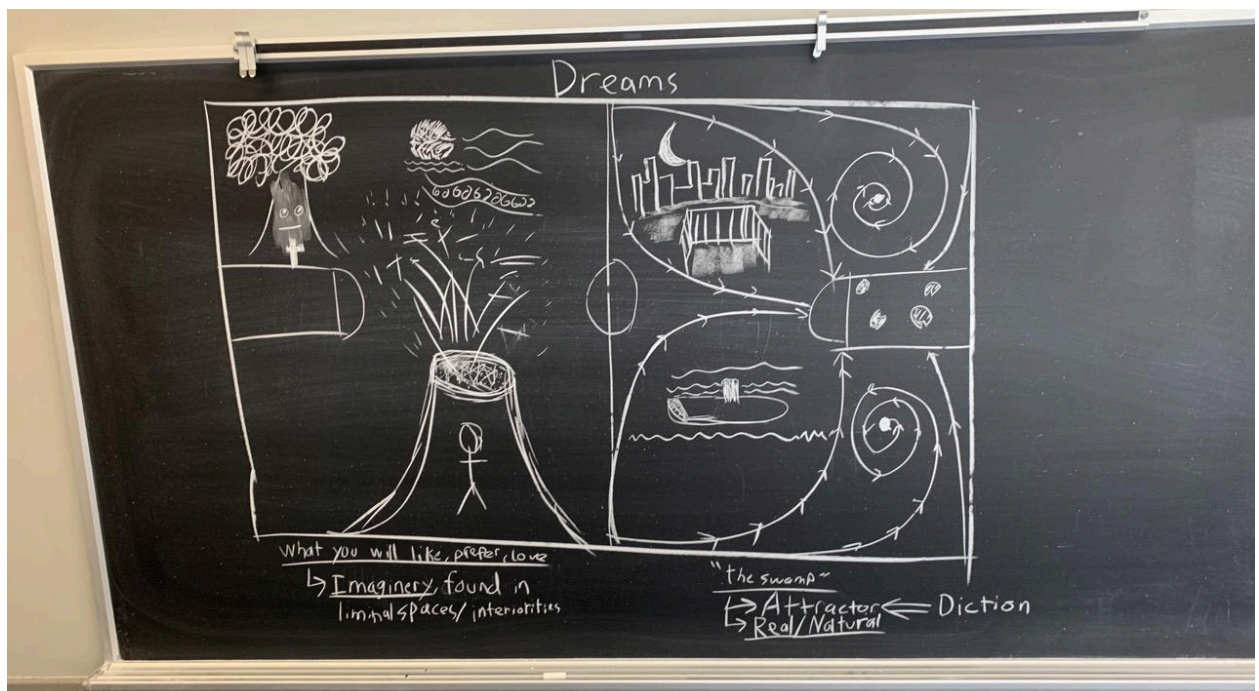 Dreams
What you will like, prefer, love
↳ Imaginery, found in
liminal spaces/ interiorities
"the swamp~
↳ Attractor ⇐ Diction
↳ Real/Natural